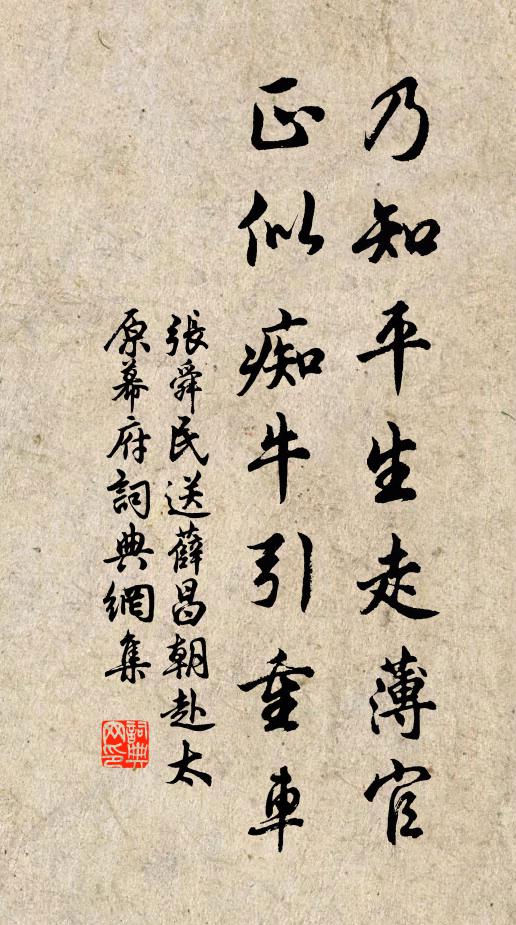 乃知平生走薄官
正似痴牛引重車
張舜民送薛昌朝赴太
原幕府詞典網集
詞典网印